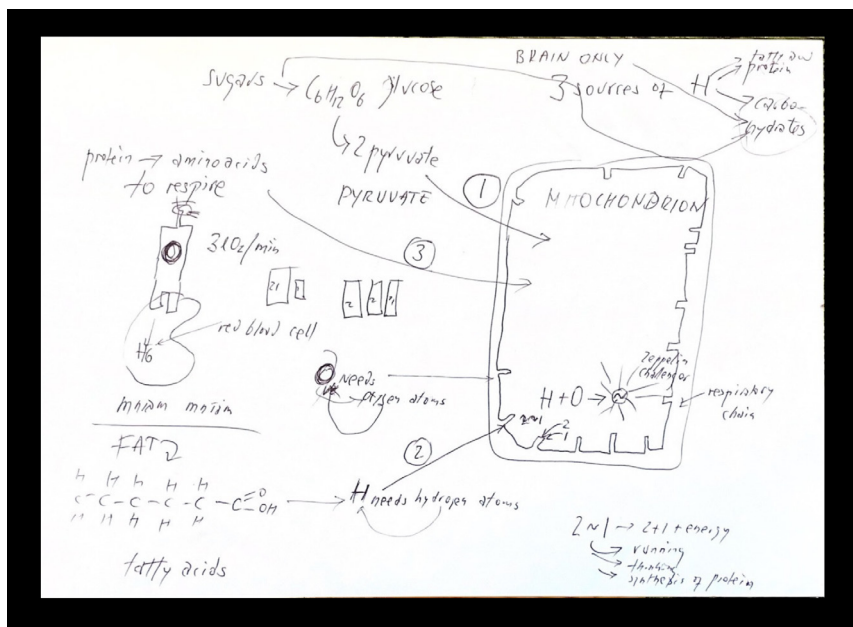 BRAIN ONLY
sugars → C6H12O6 glucose
3 sources of H
fatty
protein
carbo-
hydrates
2 pyruvate
PYRUVATE
protein → aminoacids
to respire
1
MITOCHONDRION
3lO2/min
3
red blood cell
Hb
needs
oxygen atoms
H+O →
Zeppelin
challenger
respiratory
chain
mniam mniam
FAT
2
2~1
H H H H H
C-C-C-C-C-C=O
OH
H H H H H
H needs hydrogen atoms
fatty acids
2~1 → 2+1+energy
running
thinking
synthesis of protein